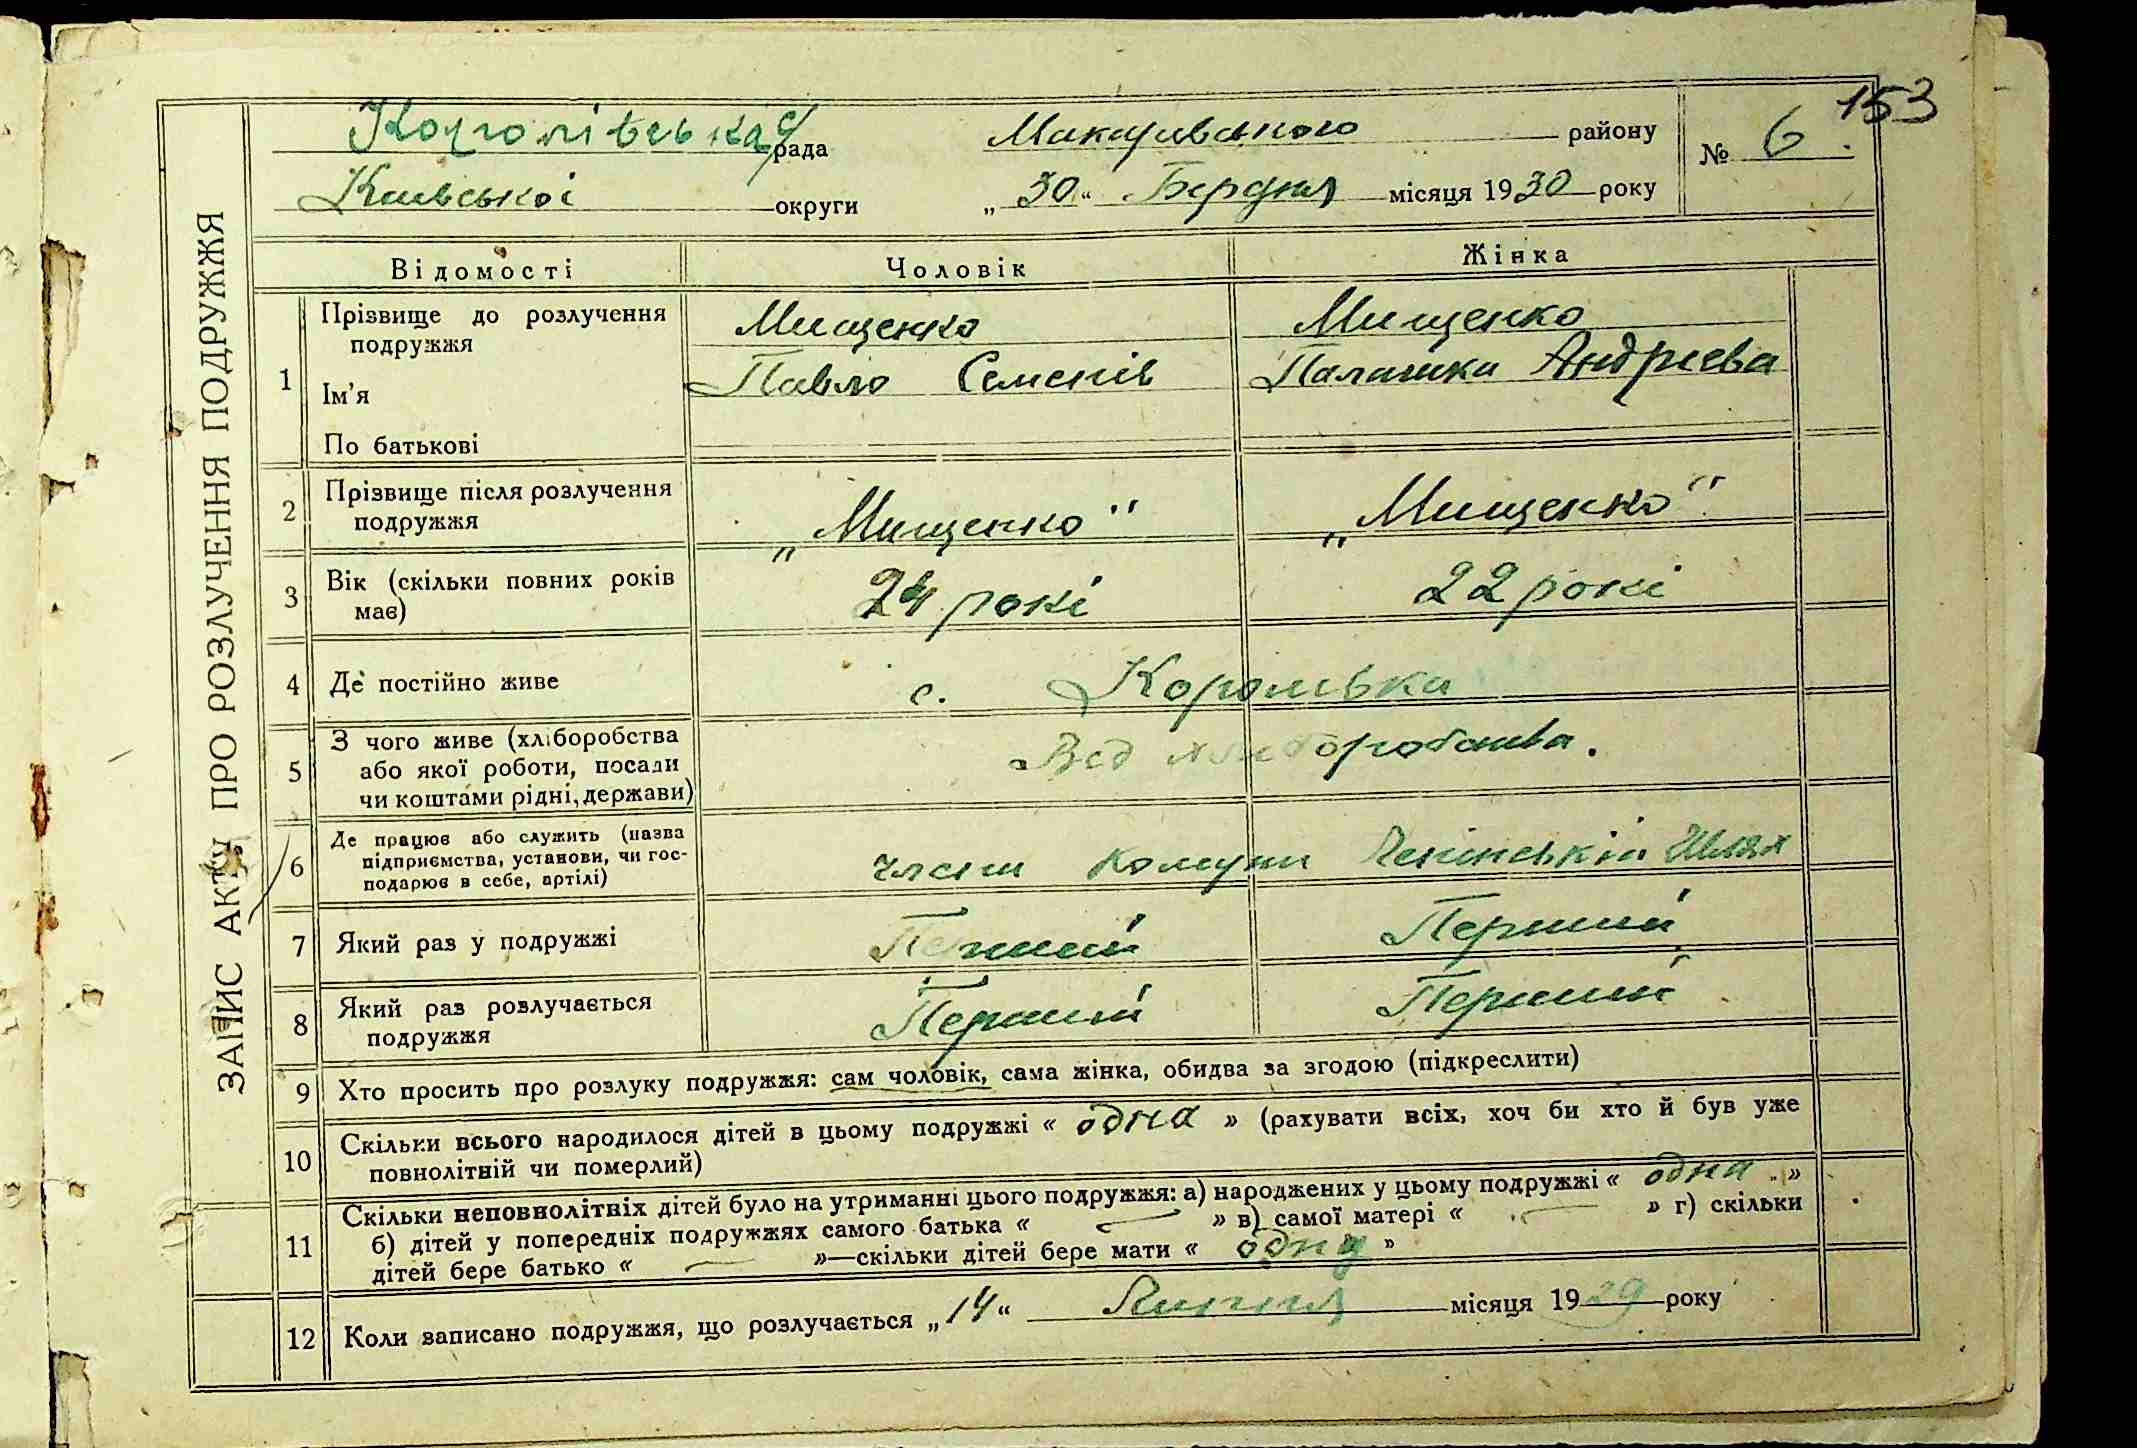 153
Королівська рада Макарівського району № 6
Київської округи „30“ Березня місяця 1930 року
ЗАПИС АКТУ ПРО РОЗЛУЧЕННЯ ПОДРУЖЖЯ
Відомості Чоловік Жінка
1 Прізвище до розлучення подружжя Мищенко Мищенко
Ім'я Павло Семенів Палашка Андрієва
По батькові
2 Прізвище після розлучення подружжя „Мищенко" „Мищенко"
3 Вік (скільки повних років має) 24 рокі 22 рокі
4 Де постійно живе с. Королівка
5 З чого живе (хліборобства
або якої роботи, посади
чи коштами рідні, держави) Від хліборобства.
6 Де працює або служить (назва
підприємства, установи, чи гос-
подарює в себе, артілі) члени Комуни Ленінській Шлях
7 Який раз у подружжі Перший Перший
8 Який раз розлучається подружжя Перший Перший
9 Хто просить про розлуку подружжя: сам чоловік, сама жінка, обидва за згодою (підкреслити)
10 Скільки всього народилося дітей в цьому подружжі « одна » (рахувати всіх, хоч би хто й був уже
повнолітній чи померлий)
11 Скільки неповнолітніх дітей було на утриманні цього подружжя: а) народжених у цьому подружжі « одна »
б) дітей у попередніх подружжях самого батька « — » в) самої матері « — » г) скільки
дітей бере батько « — »—скільки дітей бере мати « одну »
12 Коли записано подружжя, що розлучається „14“ Липня місяця 1929 року